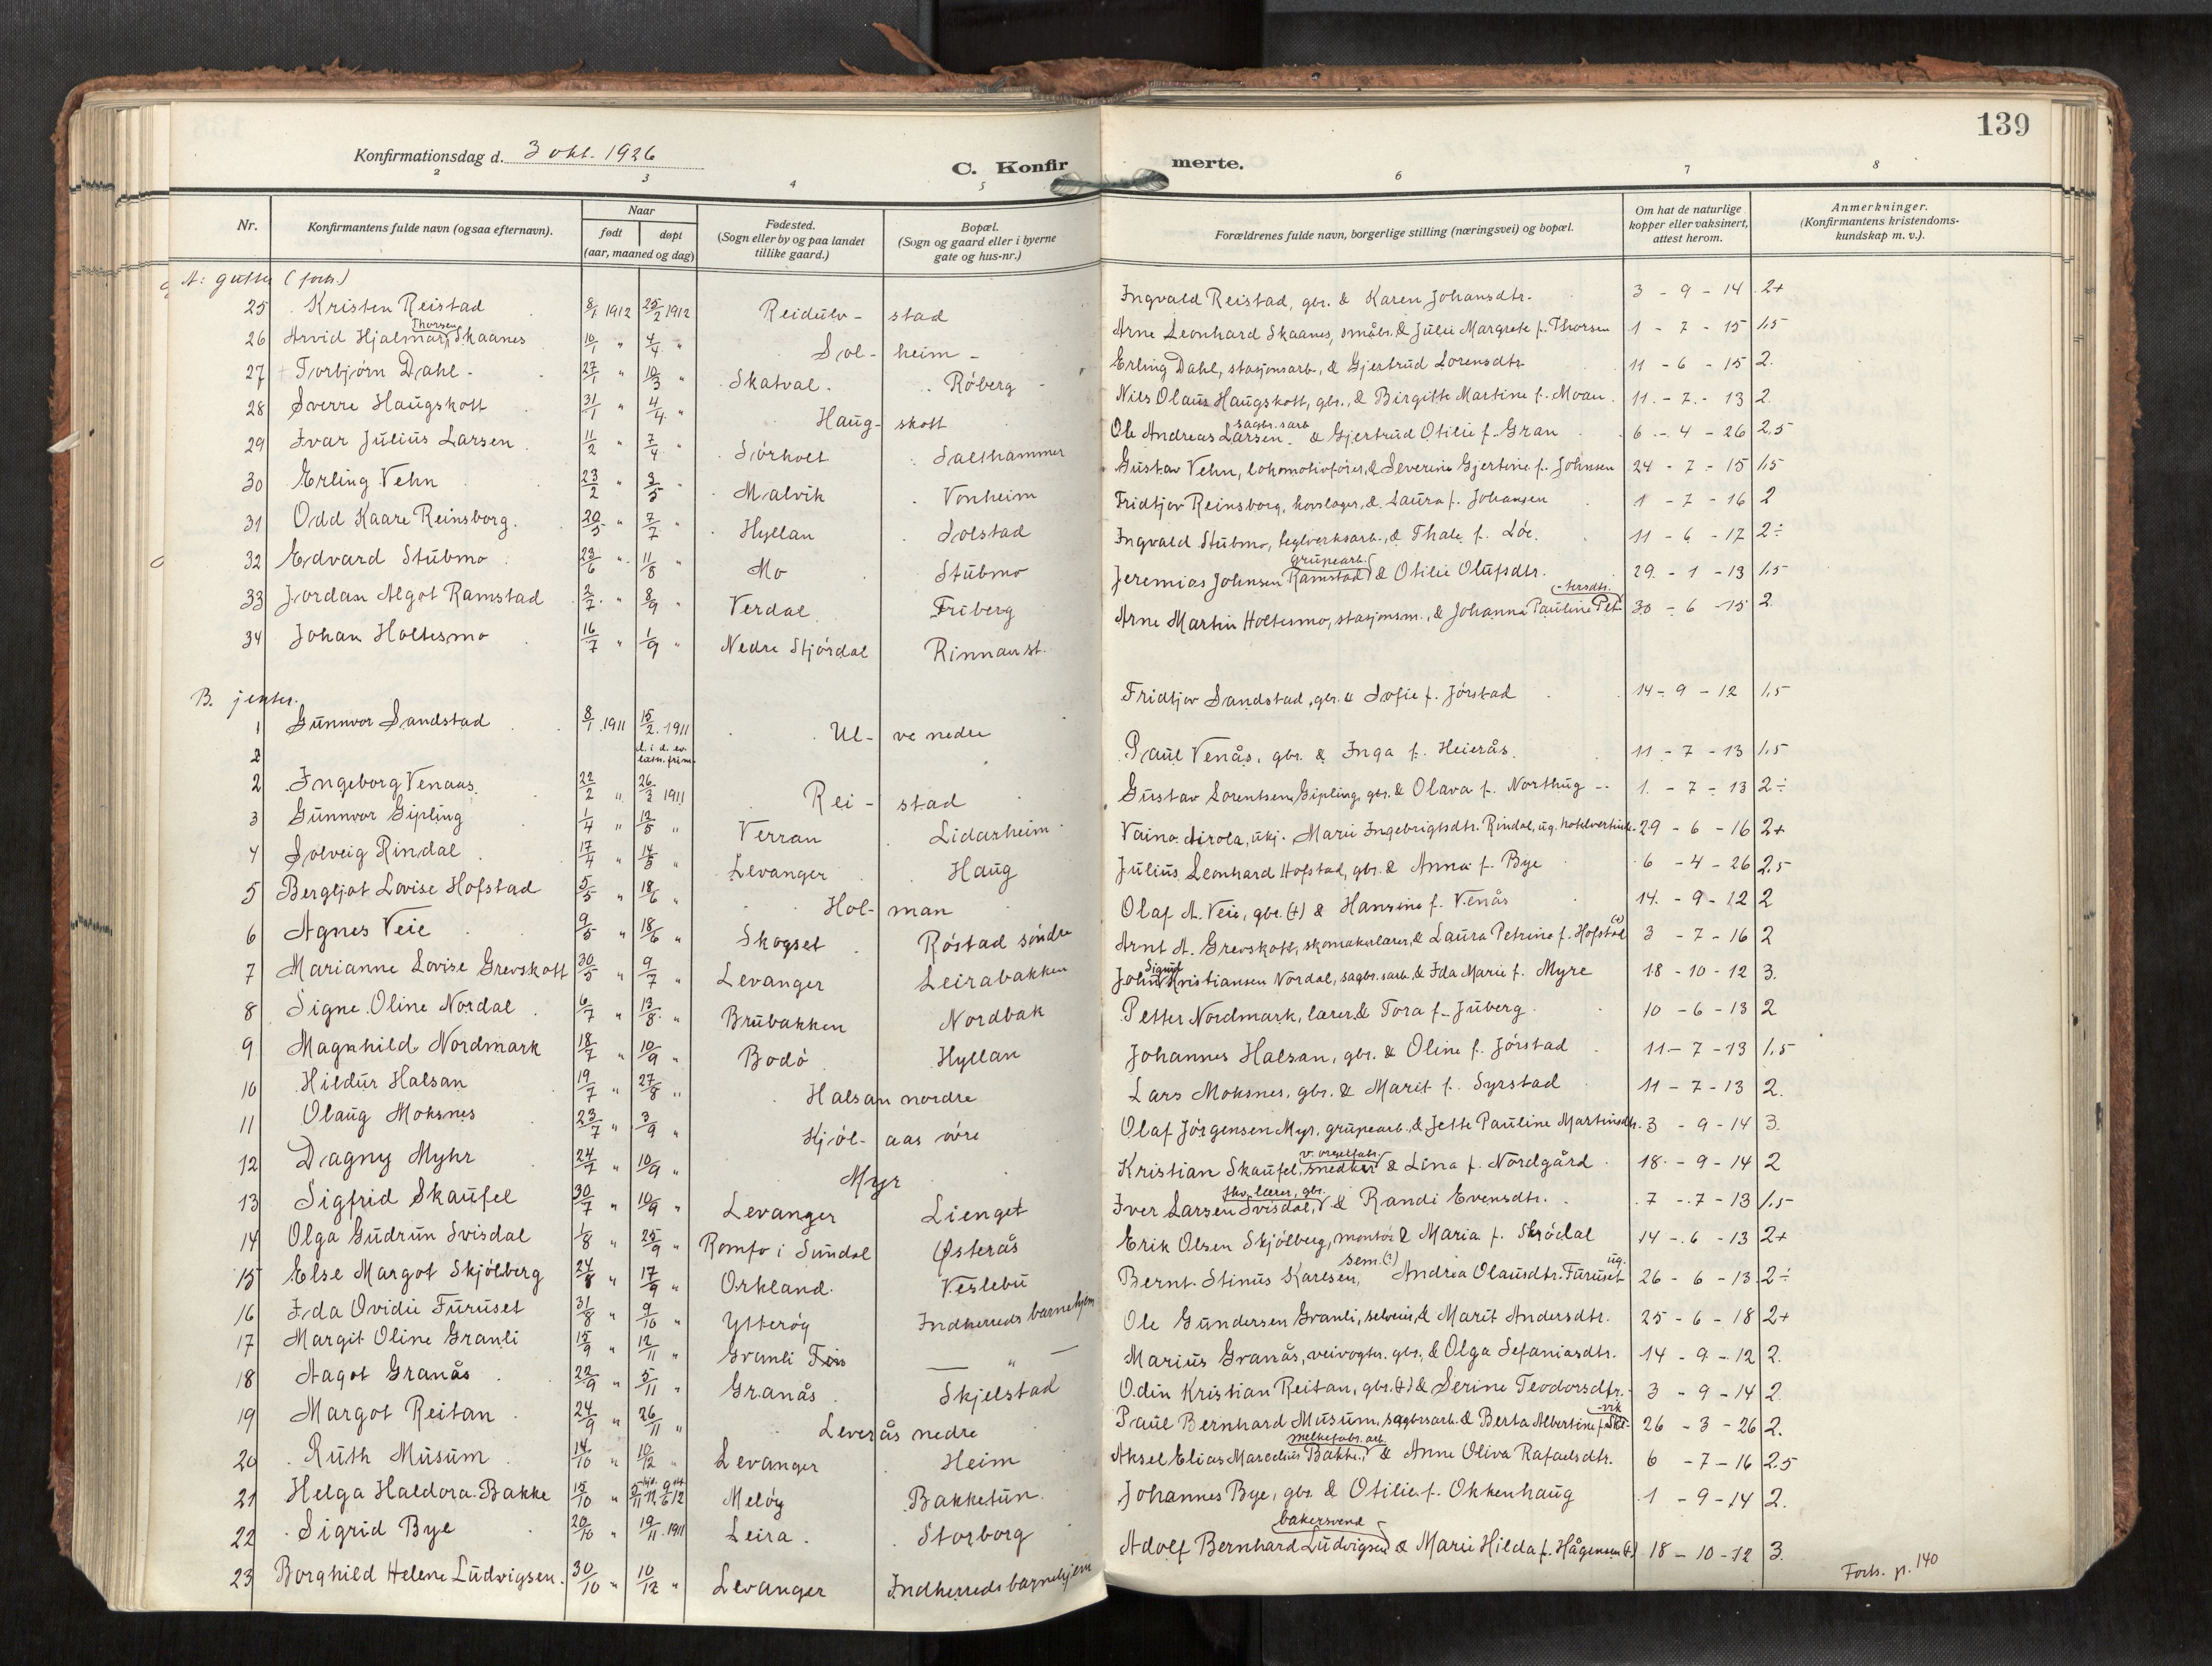 139
Konfirmationsdag d. 3 okt. 1926
C. Konfir merte.
2 3 4 5 6 7 8
Nr. Konfirmantens fulde navn (ogsaa efternavn). Naar født døpt (aar, maaned og dag) Fødested. (Sogn eller by og paa landet tillike gaard.) Bopæl. (Sogn og gaard eller i byerne gate og hus-nr.) Forældrenes fulde navn, borgerlige stilling (næringsvei) og bopæl. Om hat de naturlige kopper eller vaksinert, attest herom. Anmerkninger. (Konfirmantens kristendoms-kundskap m. v.).
A: gutter (forts.)
25 Kristen Reistad 8/1 1912 25/2 1912 Reidulv- stad Ingvald Reistad, gbr. & Karen Johansdtr. 3 - 9 - 14 2+
26 Arvid Hjalmar Thorsen Skaanes 10/1 " 4/4 " Sol- heim - Arne Leonhard Skaanes, småbr. & Julie Margrete f. Thorsen 1 - 7 - 15 1,5
27 Torbjørn Dahl 27/1 " 10/3 " Skatval. Röberg Erling Dahl, stasjonsarb., & Gjertrud Lorensdtr. 11 - 6 - 15 2.
28 Sverre Haugskott 31/1 " 4/4 " Haug- skott Nils Olaus Haugskott, gbr., & Birgitte Martine f. Moan. 11. - 7. - 13 2.
29 Ivar Julius Larsen 11/2 " 7/4 " Sörholt Salthammer Ole Andreas Larsen. sagbr.sarb & Gjertrud Otilie f. Gran 6 - 4 - 26 2,5
30 Erling Vehn 23/2 " 3/5 " Malvik Vonheim Gustav Vehn, lokomotivförer, & Severine Gjertine f. Johnsen 24 - 7 - 15 1,5
31 Odd Kaare Reinsborg. 20/5 " 7/7 " Hyllan Solstad Fridtjov Reinsborg, hovslager, & Laura f. Johansen 1 - 7 - 16 2
32 Edvard Stubmo 23/6 " 11/8 " Mo Stubmo Ingvald Stubmo, teglverksarb., & Thale f. Löe. 11 - 6 - 17 2÷
33 Jordan Algot Ramstad 2/7 " 8/9 " Verdal Friberg Jeremias Johnsen Ramstad grupearb. & Otilie Olufsdtr. 29. - 1 - 13 1,5
34 Johan Holtesmo 16/7 " 1/9 " Nedre Stjördal Rinnan st. Arne Martin Holtesmo, stasjonsm., & Johanna Pauline Pet-tersdtr. 30 - 6 - 15 2.
B. jenter.
1 Gunnvor Sandstad 8/1 1911 15/2 1911 Ul- ve nedre Fridtjov Sandstad, gbr. & Sofie f. Jörstad 14 - 9 - 12 1,5
2 d. i d. ev. luth. frim.
2 Ingeborg Venaas 22/2 " 26/3 1911 Rei- stad Paul Venås, gbr. & Inga f. Heierås. 11 - 7 - 13 1,5
3 Gunnvor Gipling 1/4 " 12/5 " Verran Lidarheim Gustav Lorentsen Gipling, gbr. & Olava f. Northug 1. - 7 - 13 2÷
4 Solveig Rindal 17/4 " 14/5 " Levanger Haug Vaino Airola, ukj. Marie Ingebrigtsdtr. Rindal, ug. hotelvertinde. 29 - 6 - 16 2+
5 Bergljot Lovise Hofstad 5/5 " 18/6 " Hol- man Julius Leonhard Hofstad, gbr. & Anna f. Bye 6 - 4 - 26 2,5
6 Agnes Veie 9/5 " 18/6 " Skogset Röstad söndre Olaf A. Veie, gbr. (+) & Hansine f. Venås 14. - 9 - 12 2
7 Marianne Lovise Grevskott 30/5 " 9/7 " Levanger Leirabakken Arnt A. Grevskott, skomakerlærer, & Laura Petrine f. Hofstad (+) 3 - 7 - 16 2
8 Signe Oline Nordal 6/7 " 13/8 " Brubakken Nordbak John Sigurf Kristiansen Nordal, sagbr.sarb. & Ida Marie f. Myre 18 - 10 - 12 3.
9 Magnhild Nordmark 18/7 " 10/9 " Bodö Hyllan Petter Nordmark, lærer, & Tora f. Juberg 10 - 6 - 13 2
10 Hildur Halsan 19/7 " 27/8 " Halsan nordre Johannes Halsan, gbr. & Oline f. Jörstad 11 - 7 - 13 1,5
11 Olaug Moksnes 23/7 " 3/9 " Kjöl- aas övre Lars Moksnes, gbr. & Marit f. Syrstad 11 - 7 - 13 2.
12 Dagny Myhr 24/7 " 10/9 " Myr Olaf Jörgensen Myr, grupearb., & Jette Pauline Martinsdtr. 3 - 9 - 14 3.
13 Sigfrid Skaufel 30/7 " 10/9 " Levanger Lienget Kristian Skaufel, snedker v. orgelfabr. & Lina f. Nordgård 18. - 9 - 14 2
14 Olga Gudrun Svisdal 1/8 " 25/9 " Romfo i Sundal Østerås Iver Larsen Svisdal, fhv. lærer, gbr. & Randi Evensdtr. 7 - 7 - 13 1,5
15 Else Margot Skjölberg 24/8 " 17/9 " Orkland. Veslebu Erik Olsen Skjölberg, montör & Maria f. Skrödal 14 - 6 - 13 2+
16 Ida Ovidie Furuset 31/8 " 9/10 " Ytteröy Indherreds barnehjem Bernt. Stinus Karlsen, sem. (?) Andrea Olausdtr. Furuset ug. 26 - 6 - 13 2÷
17 Margit Oline Granli 15/9 " 12/11 " Granli — " — Ole Gundersen Granli, selveier, & Marit Andersdtr. 25 - 6 - 18 2+
18 Aagot Granås 22/9 " 5/11 " Granås Skjelstad Marius Granås, veivogter, gbr., & Olga Sefaniasdtr. 14 - 9 - 12 2.
19 Margot Reitan 24/9 " 26/11 " Lever ås nedre Odin Kristian Reitan, gbr. (+) & Serine Teodorsdtr. 3 - 9 - 14 2.
20 Ruth Musum 14/10 " 10/12 " Levanger Heim Paul Bernhard Musum, sagbrsarb. & Berta Albertine f. -vik 26 - 3 - 26 2.
21 Helga Haldora Bakke 15/10 " Melöy Bakketun. Aksel Elias Marcelius Bakke, melkefabr. arb. & Anne Oliva Rafaelsdtr. 6 - 7 - 16 2,5
22 Sigrid Bye 20/10 " 19/11 1911 Leira. Storborg Johannes Bye, gbr. & Otilie f. Okkenhaug 1 - 9 - 14 2.
23 Borghild Helene Ludvigsen. 30/10 " 10/12 " Levanger Indherreds barnehjem Adolf Bernhard Ludvigsen bakersvend & Marie Hilda f. Hågensen (+) 18 - 10 - 12 3.
Forts. p. 140